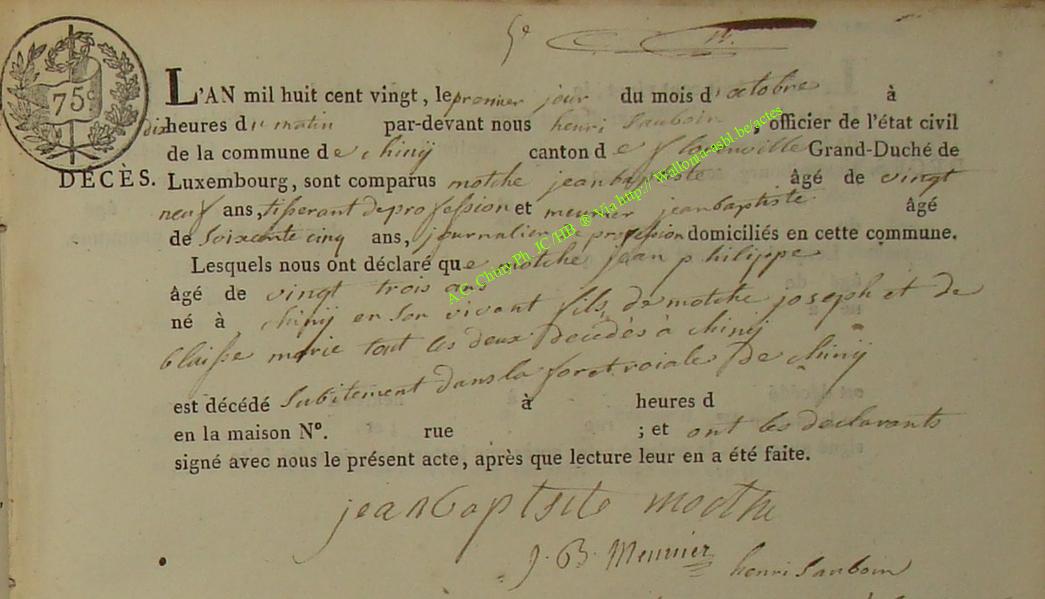 5e
75c
L'AN mil huit cent vingt, le premier jour du mois d'octobre à
dix heures du matin par-devant nous henri Sauboin, officier de l'état civil
de la commune de chinÿ canton de florenville Grand-Duché de
DÉCÈS. Luxembourg, sont comparus motche jeanbaptiste âgé de vingt
neuf ans, tisserant de profession et meunier jeanbaptiste âgé
de soixente cinq ans, journalier de profession domiciliés en cette commune.
Lesquels nous ont déclaré que motche jean philippe
âgé de vingt trois ans
né à chinÿ en son vivant fils de motche joseph et de
blaisse marie tout les deux décédès à chinÿ
est décédé subitement dans la foret roiale de chinÿ à heures d
en la maison N°. rue ; et ont les declarants
signé avec nous le présent acte, après que lecture leur en a été faite.
jeanbaptsite motche
J. B. Meunier
henri Sauboin
A.C. Chiny Ph JC/HB ® Via http:// Wallonia-asbl.be/actes